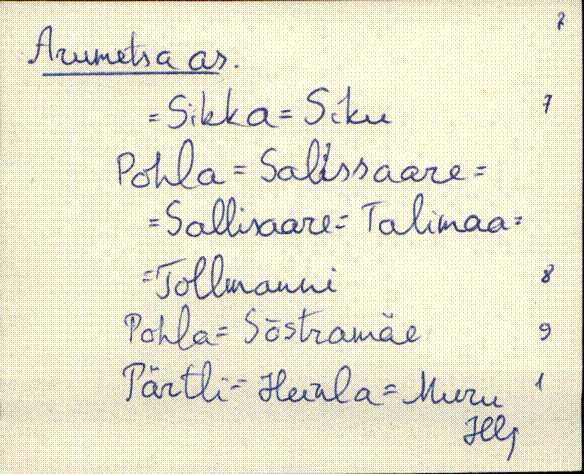 7
Arumetsa as.
= Sikka = Siku 7
Pohla = Salissaare =
= Sallisaare = Talimaa =
= Tollmanni 8
Pohla = Sõstramäe 9
Pärtli = = Muru 1